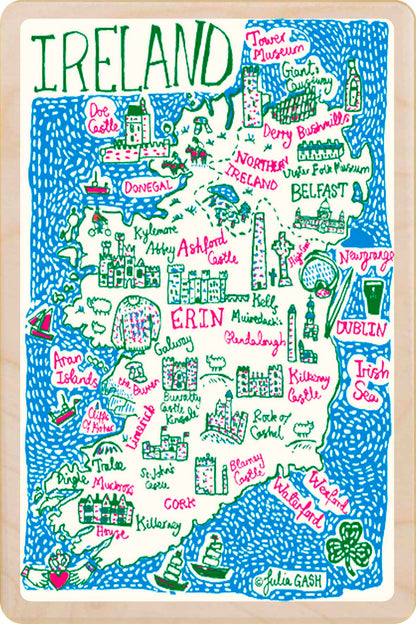 IRELAND
Tower
Museum
Giant's
Causeway
Doe
Castle
Derry Bushmills
NORTHERN
IRELAND
Ulster Folk Museum
DONEGAL
BELFAST
Kylemore
Abbey
Ashford
Castle
High Cross
Newgrange
Kells
ERIN
Muiredach's
DUBLIN
Glendalough
Galway
Aran
Islands
the Burren
Irish
Sea
Bunratty
Castle
Kinsale
Kilkenny
Castle
Cliffs
Of Moher
Limerick
Rock of
Cashel
Tralee
St John's
Castle
Blarney
Castle
Dingle
Muckross
House
CORK
Wexford
Waterford
Killarney
©Julia GASH